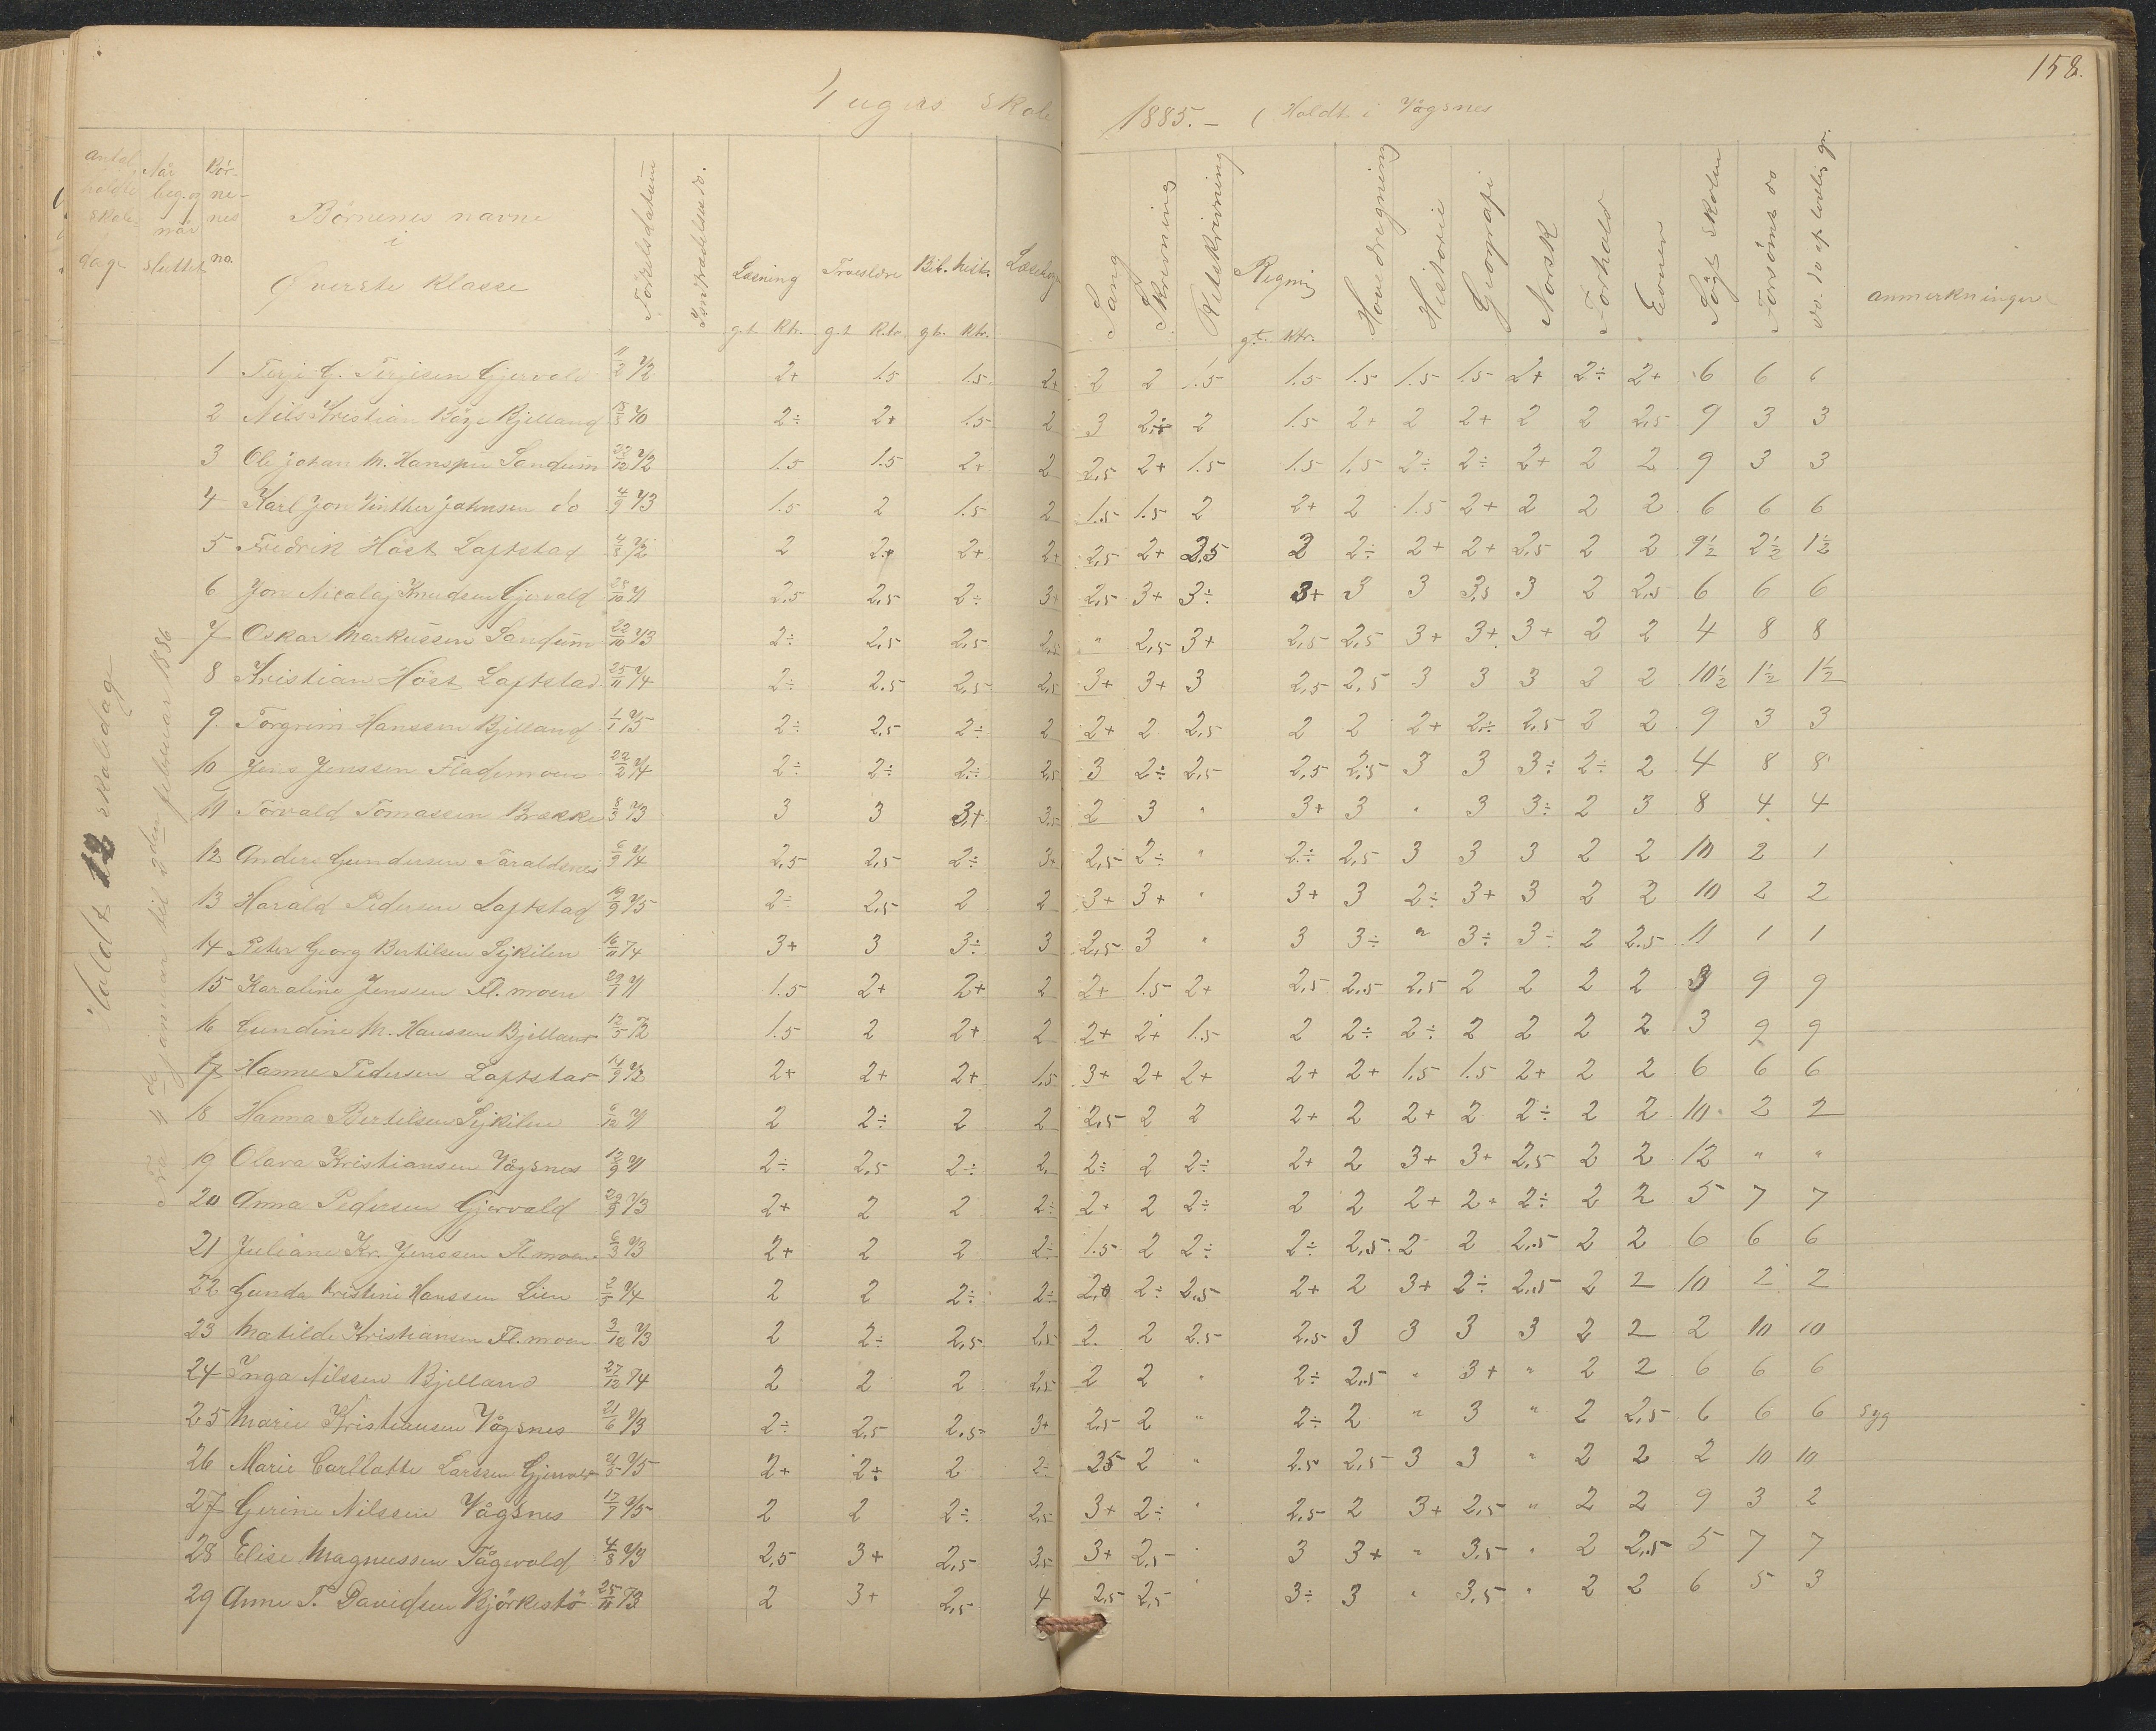 158.
4 ugers skole 1885.- (Holdt i Vågsnes
antal holdte skole dage
Når beg. og når sluttet
Bør-ne-nes no.
Børnenes navne i Øverste Klasse
Fødselsdatum
Læsning Troeslære Bib. hist. Læsebog Sang Skrivning Retskrivning Regning Hovedregning Historie Geografi Norsk Forhold Evner Søgt skolen Forsømt do do. do af lovlig gr. anmerkninger
gt. Ktr. gt Ktr. gt. Ktr. gt. Ktr.
Holdt 12 skoledage
januar til februar 1886
1 Terji G. Terjesen Gjervold 11/2 72 2+ 1.5 1.5 2+ 2 2 1.5 1.5 1.5 1.5 1.5 2+ 2÷ 2+ 6 6 6
2 Nils Kristian Bjelland 70 2÷ 2+ 1.5 2 3 2÷ 2 1.5 2+ 2 2+ 2 2 2,5 9 3 3
3 Ole Johan M. Hanssen Sandum 72 1.5 1.5 2+ 2 2,5 2+ 1.5 1.5 1,5 2÷ 2÷ 2+ 2 2 9 3 3
4 Karl Jon Vinther Johnsen do 4/9 73 1.5 2 1.5 2 1.5 1.5 2 2+ 2 1.5 2+ 2 2 2 6 6 6
5 Fredrik Høst Laftstad 72 2 2+ 2+ 2+ 2,5 2+ 2.5 2 2÷ 2+ 2+ 2,5 2 2 9½ 2½ 1½
6 Jon Nicolaj Knudsen Gjervold 28/10 71 2,5 2,5 2÷ 3+ 2,5 3+ 3÷ 3+ 3 3 3,5 3 2 2,5 6 6 6
7 Oskar Markussen Sandum 22/10 73 2÷ 2,5 2,5 2,5 " 2,5 3+ 2,5 2,5 3+ 3+ 3+ 2 2 4 8 8
8 Kristian Høst Laftstad 25/11 74 2÷ 2.5 2,5 2,5 3+ 3+ 3 2,5 2,5 3 3 3 2 2 10½ 1½ 1½
9. Torgrim Hanssen Bjelland 1/1 75 2÷ 2.5 2÷ 2 2+ 2 2,5 2 2 2+ 2÷ 2,5 2 2 9 3 3
10 Jens Jenssen Flademoen 22/2 74 2÷ 2÷ 2÷ 2,5 3 2÷ 2,5 2,5 2,5 3 3 3÷ 2÷ 2 4 8 8
11 Torvald Tomassen Brække 8/3 73 3 3 3+ 3,5 2 3 " 3+ 3 " 3 3÷ 2 3 8 4 4
12 Anders Gundersen Taraldsnes 6/9 74 2,5 2,5 2÷ 3+ 2,5 2÷ " 2÷ 2,5 3 3 3 2 2 10 2 1
13 Harald Pedersen Laftstad 19/9 75 2÷ 2,5 2 2 3+ 3+ " 3+ 3 2÷ 3+ 3 2 2 10 2 2
14 Peter Georg Bertilsen Sejkilen 16/11 74 3+ 3 3÷ 3 2,5 3 " 3 3÷ " 3÷ 3÷ 2 2.5 11 1 1
15 Karoline Jensen Fl. moen 29/1 71 1.5 2+ 2+ 2 2+ 1.5 2+ 2,5 2,5 2,5 2 2 2 2 3 9 9
16 Gundine M. Hanssen Bjelland 12/5 72 1.5 2 2+ 2 2+ 2+ 1.5 2 2÷ 2÷ 2 2 2 2 3 9 9
17 Hanne Pedersen Laftstad 14/9 72 2+ 2+ 2+ 1,5 3+ 2+ 2+ 2+ 2+ 1,5 1.5 2+ 2 2 6 6 6
18 Hanna Bertilsen Sejkilen 6/12 71 2 2÷ 2 2 2,5 2 2 2+ 2 2+ 2 2÷ 2 2 10 2 2
19 Olava Kristiansen Vågsnes 12/9 71 2÷ 2,5 2÷ 2 2÷ 2 2÷ 2+ 2 3+ 3+ 2,5 2 2 12 " "
20 Anna Pedersen Gjervold 29/9 73 2+ 2 2 2÷ 2+ 2 2÷ 2 2 2+ 2+ 2÷ 2 2 5 7 7
21 Juliane Kr. Jenssen Fl. moen 6/3 73 2+ 2 2 2÷ 1.5 2 2÷ 2÷ 2,5 2 2 2,5 2 2 6 6 6
22 Gunda Kristine Hanssen Lien 2/5 74 2 2 2÷ 2÷ 2,0 2÷ 2,5 2+ 2 3+ 2÷ 2,5 2 2 10 2 2
23 Matilde Kristiansen Fl. moen 3/12 73 2 2÷ 2,5 2,5 2. 2 2.5 2.5 3 3 3 3 2 2 2 10 10
24 Inga Nilssen Bjelland 27/12 74 2 2 2 2,5 2 2 " 2÷ 2,5 " 3+ " 2 2 6 6 6
25 Marie Kristiansen Vågsnes 21/6 73 2÷ 2,5 2,5 3+ 2,5 2 " 2÷ 2 " 3 " 2 2,5 6 6 6 syg
26 Marie Carllotte Larssen Gjervold 75 2+ 2÷ 2 2÷ 25 2 " 2.5 2,5 3 3 " 2 2 2 10 10
27 Gerine Nilssen Vågsnes 17/7 75 2 2 2÷ 2,5 3+ 2÷ " 2,5 2 3+ 2,5 " 2 2 9 3 2
28 Elise Magnussen Tågevold 4/8 73 2,5 3+ 2,5 3,5 3+ 2,5 " 3 3+ " 3,5 " 2 2,5 5 7 7
29 Anne T. Davidsen Bjørkestø 25/11 73 2 3+ 2,5 4 2,5 2,5 " 3÷ 3 " 3,5 " 2 2 6 5 3